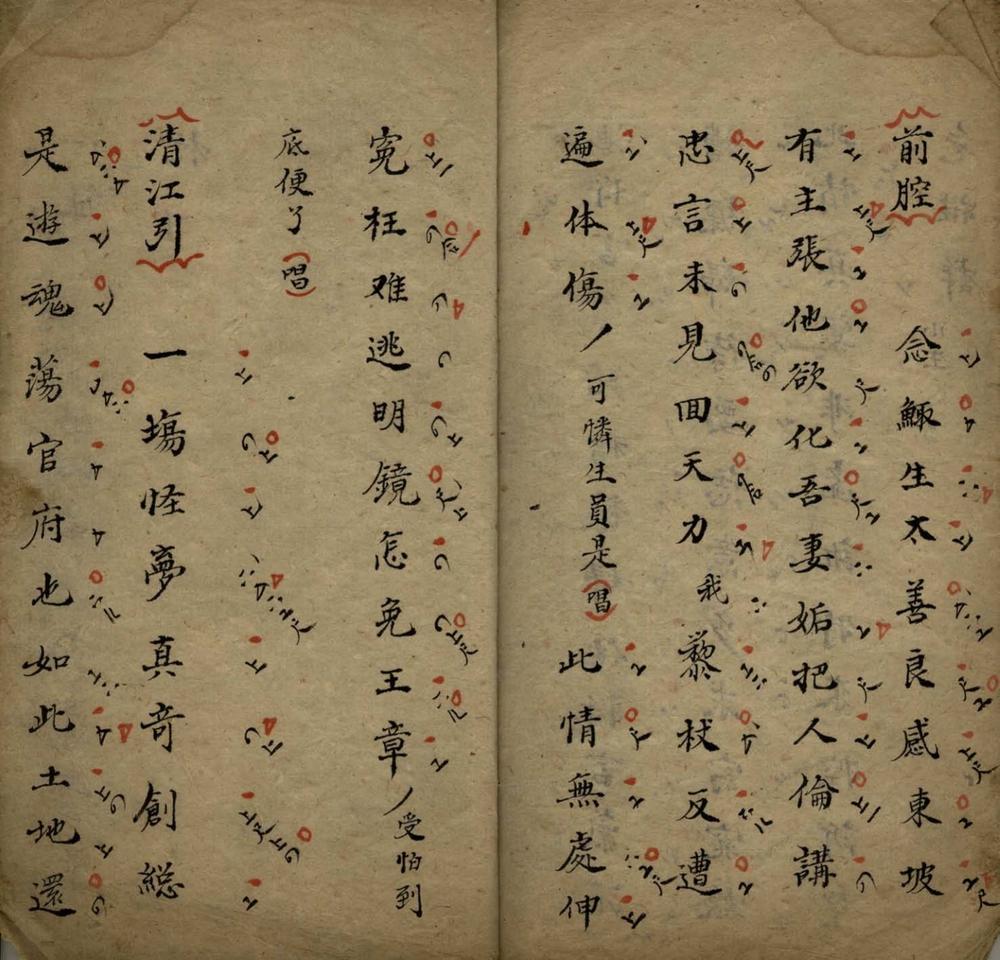 前腔 念鯫生太善良感東坡
有主張他欲化吾妻妬把人倫講
忠言未見囬天力 我藜杖反遭
遍体傷 可憐生員是(唱)此情無處伸
寃枉难逃明鏡怎免王章 受怕到
底便了(唱)
清江引 一塲怪夢真竒創縂
是遊魂蕩官府也如此土地還